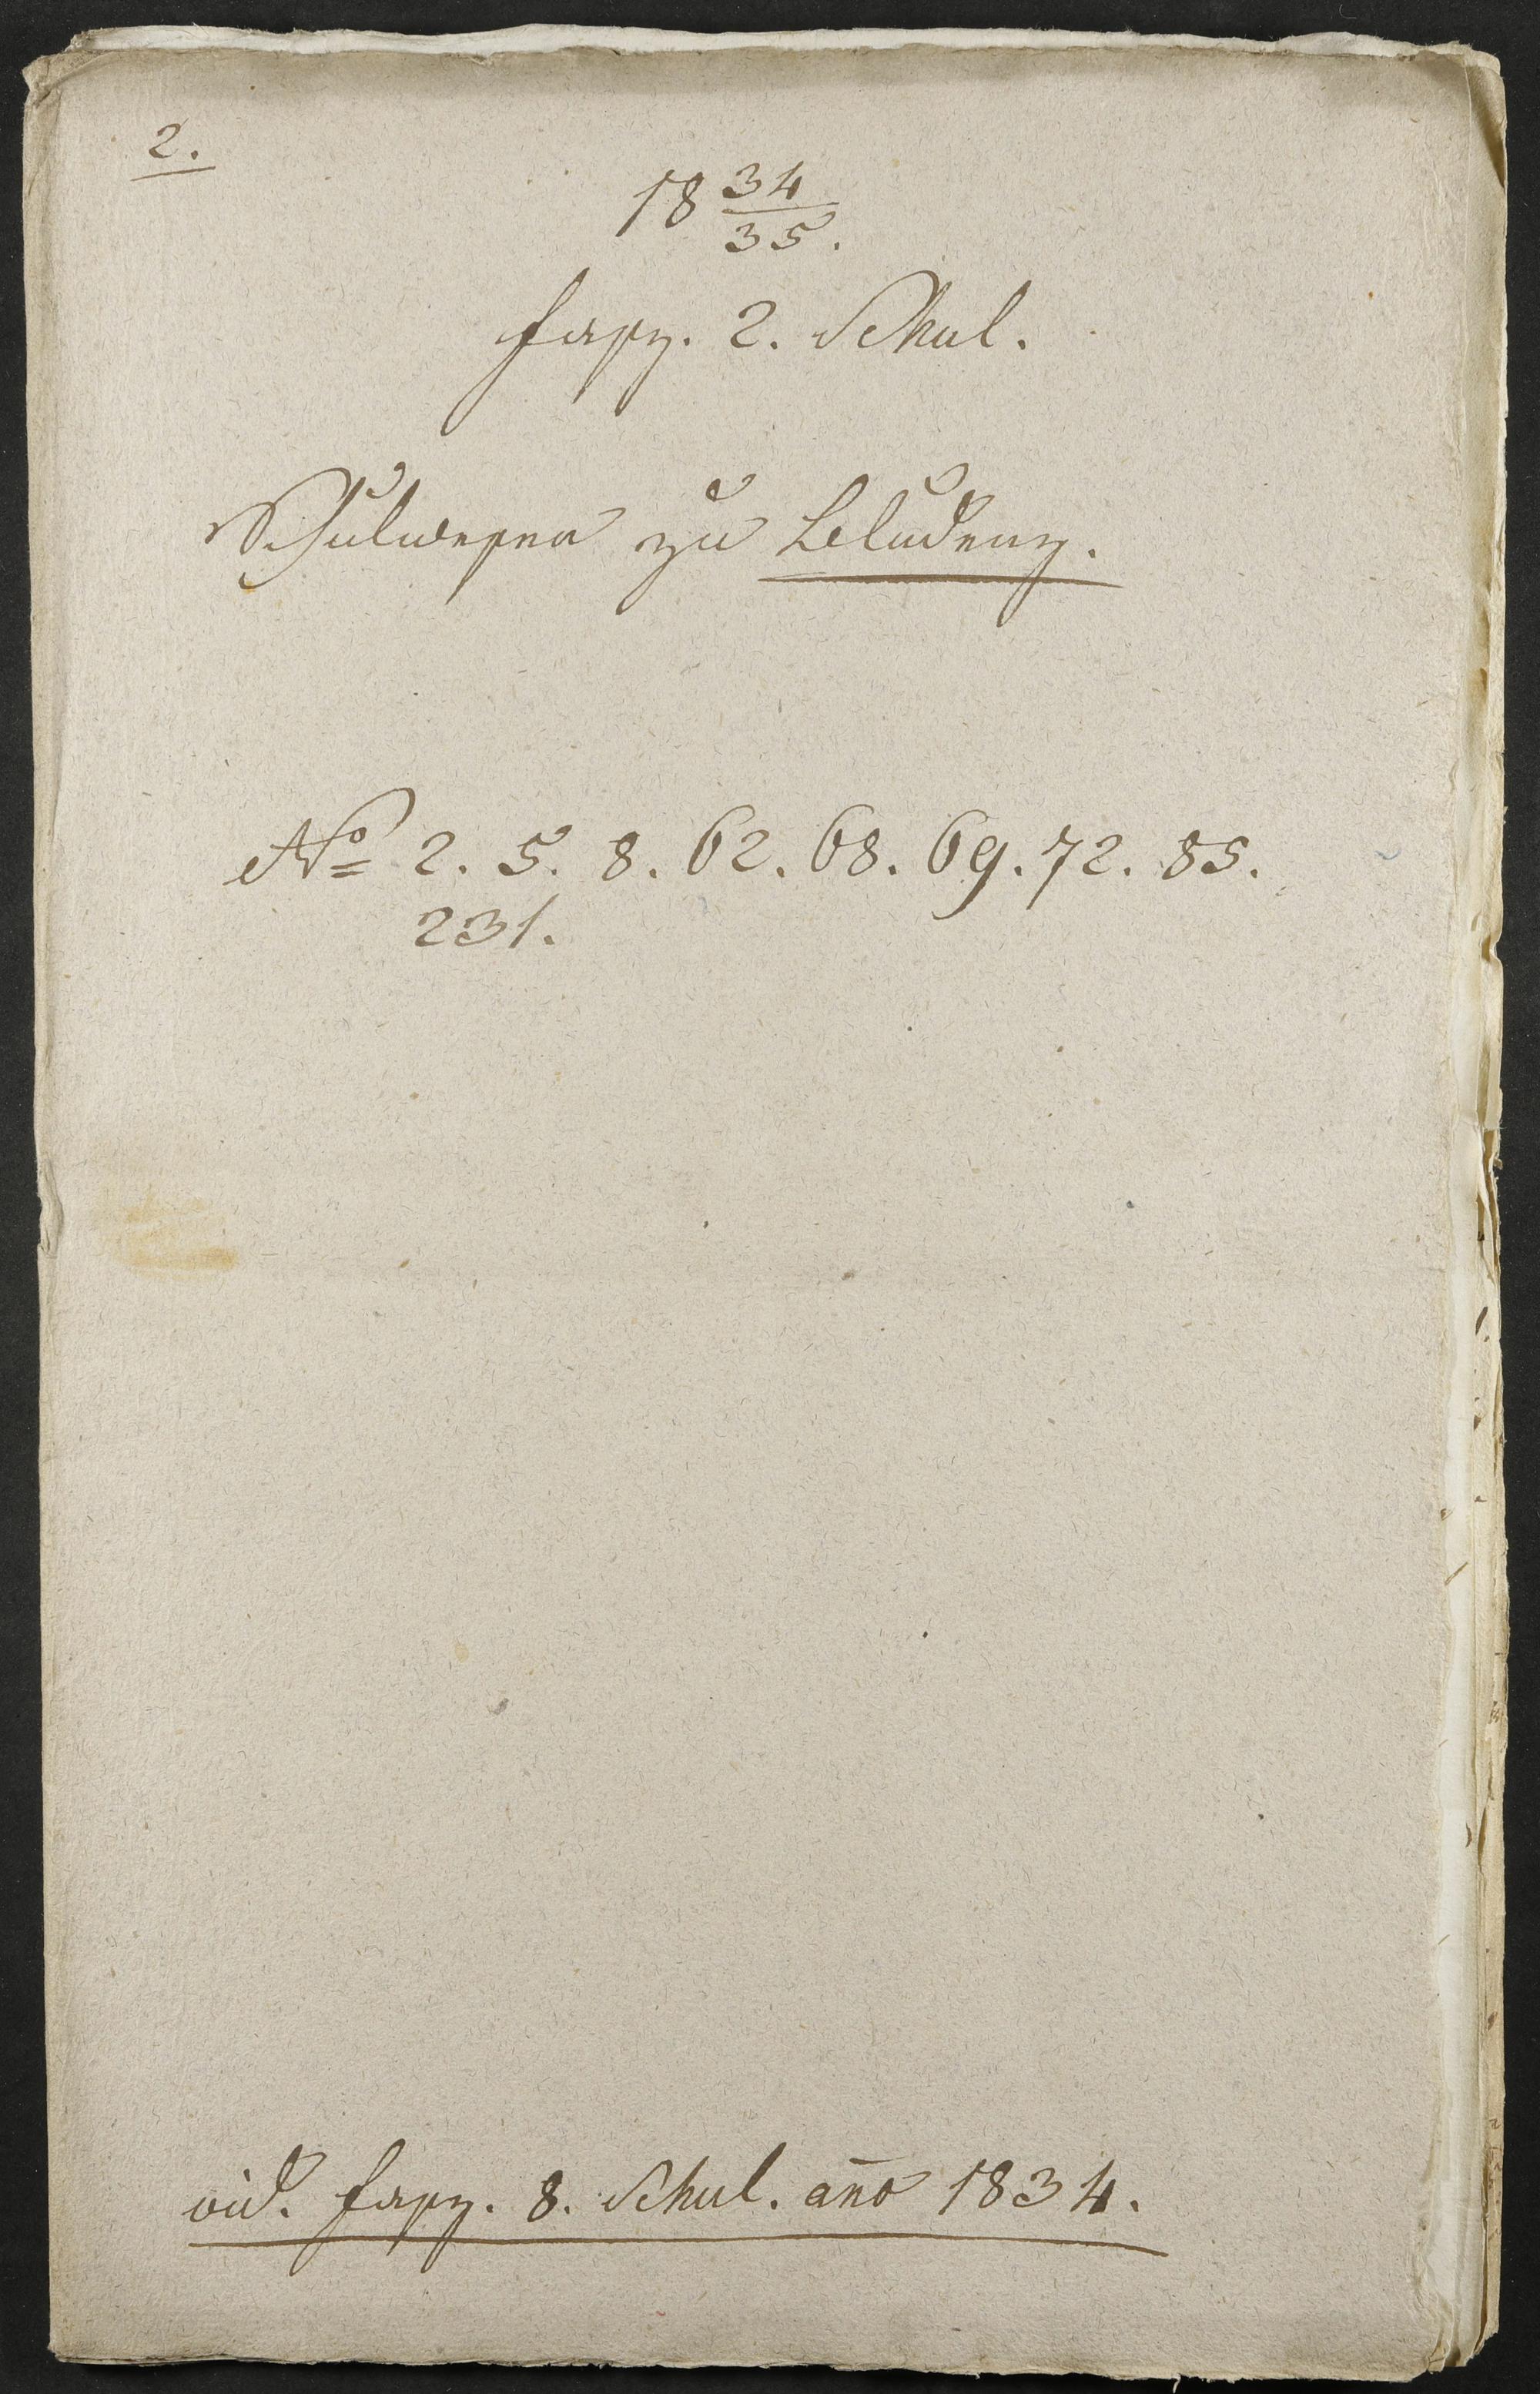 2.
18 34/35.
fasz. 2. Schul.
Schulwesen zu Bludenz.
No 2. 5. 8. 62. 68. 69. 72. 85.
231.
vid. fasz. 8. Schul. año 1834.